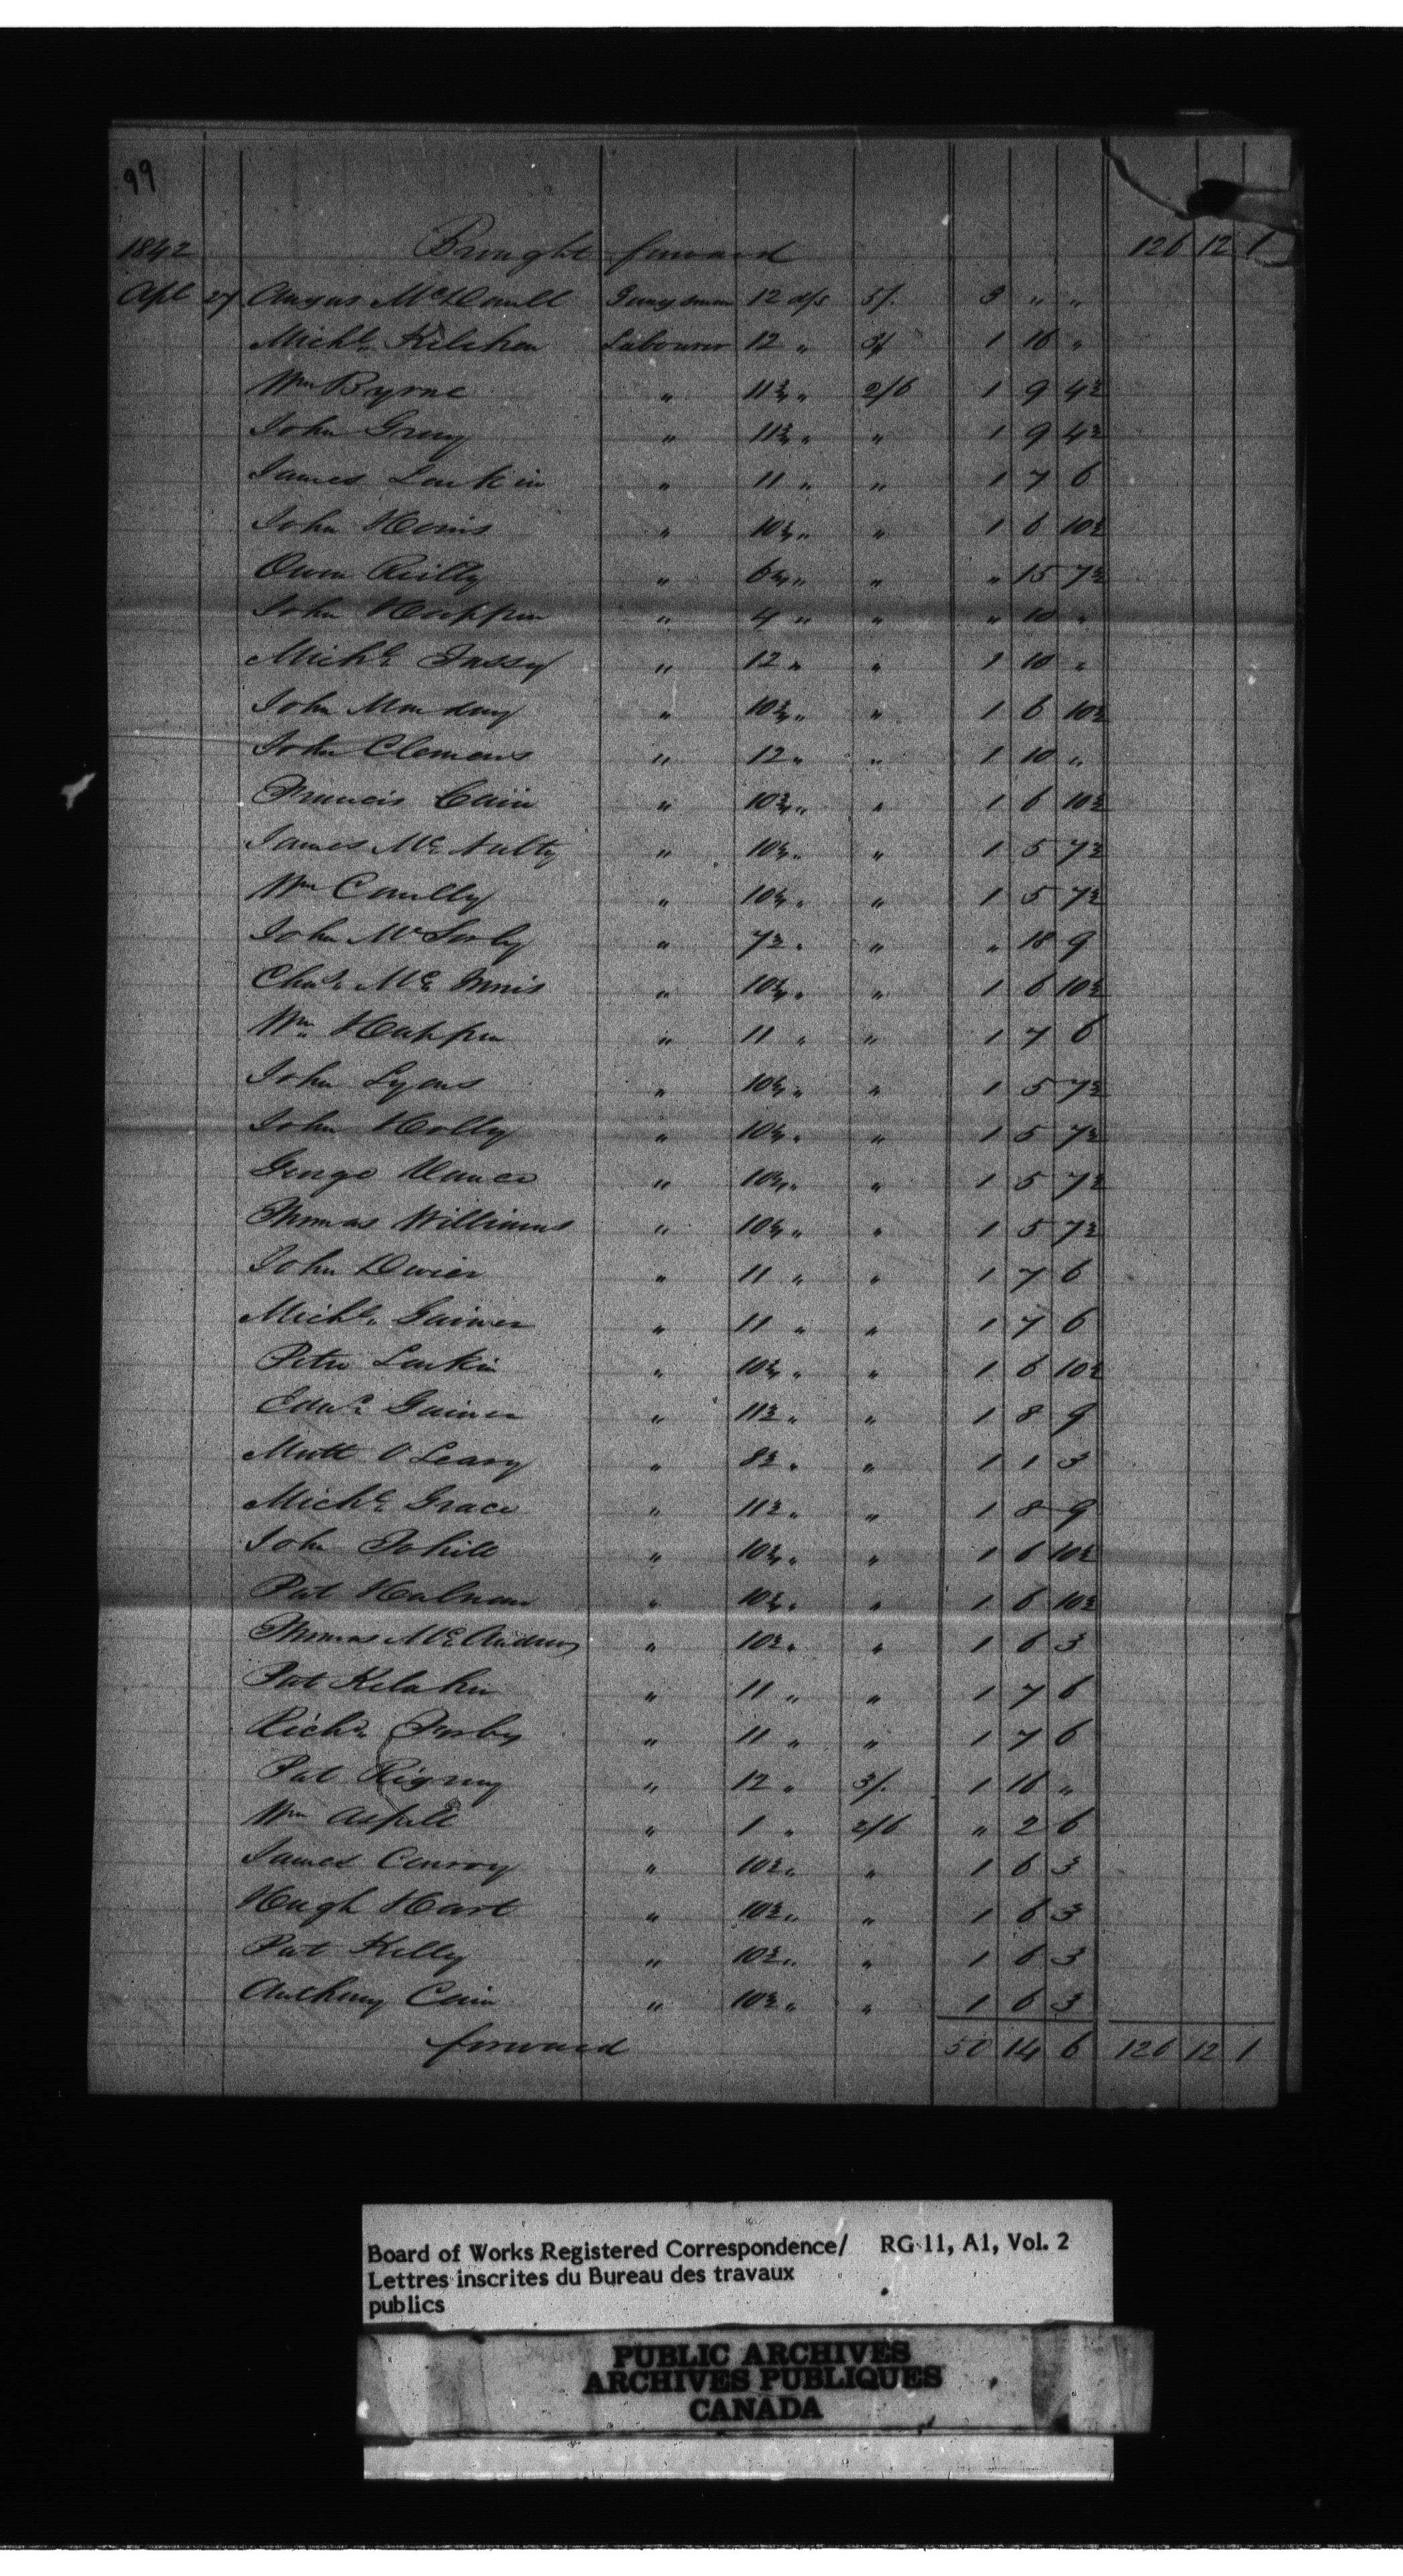 99
1842 Brought forward 126 12 1
Apl 27 Angus McDonell Gangsman 12 d/s 5/. 3 " "
Michl. Kelehen Labourer 12 " 3/ 1 16 "
Wm Byrne " 11¾ " 2/6 1 9 4½
John Gray " 11¾ " " 1 9 4½
James Larkin " 11 " " 1 7 6
John " 10¾ " " 1 6 10½
Owen Reilly " 6¼ " " " 15 7½
John Happen " 4 " " " 10 "
Michl. " 12 " " 1 10 "
John Monday " 10¾ " " 1 6 10½
John Clemens " 12 " " 1 10 "
Francis Cain " 10¾ " " 1 6 10½
James McNulty " 10¼ " " 1 5 7½
Wm Conolly " 10¼ " " 1 5 7½
John McSorly " 7½ " " " 18 9
Chas. McInnis " 10¾ " " 1 6 10½
Wm. Happen " 11 " " 1 7 6
John Lyons " 10¼ " " 1 5 7½
John Holly " 10¼ " " 1 5 7½
George " 10¼ " " 1 5 7½
Thomas Williams " 10¼ " " 1 5 7½
John Dwier " 11 " " 1 7 6
Michl. Gainer " 11 " " 1 7 6
Peter Larkin " 10¾ " " 1 6 10½
Edwd. Gainer " 11½ " " 1 8 9
Matt O'Leary " 8½ " " 1 1 3
Michl. Grace " 11½ " " 1 8 9
John Tohill " 10¾ " " 1 6 10½
Pat Halnan " 10¾ " " 1 6 10½
Thomas McAndrew " 10½ " " 1 6 3
Pat Kelaher " 11 " " 1 7 6
Richd. Forby " 11 " " 1 7 6
Pat Rigney " 12 " 3/. 1 16 "
Wm Aspill " 1 " 2/6 " 2 6
James Conroy " 10½ " " 1 6 3
Hugh Hart " 10½ " " 1 6 3
Pat Kelly " 10½ " " 1 6 3
Anthony Cain " 10½ " " 1 6 3
forward 50 14 6 126 12 1
Board of Works Registered Correspondence/ RG 11, A1, Vol. 2
Lettres inscrites du Bureau des travaux
publics
PUBLIC ARCHIVES
ARCHIVES PUBLIQUES
CANADA